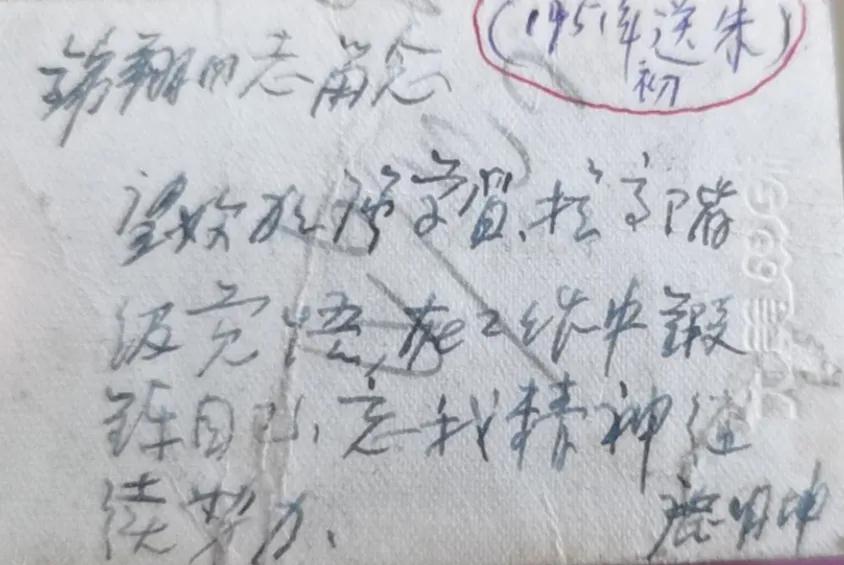 (1951年送朱
初)
锦翔同志留念
望好加强学习、提高阶
级觉悟,在工作中锻
鍊自己,忘我精神继
续努力、
明坤